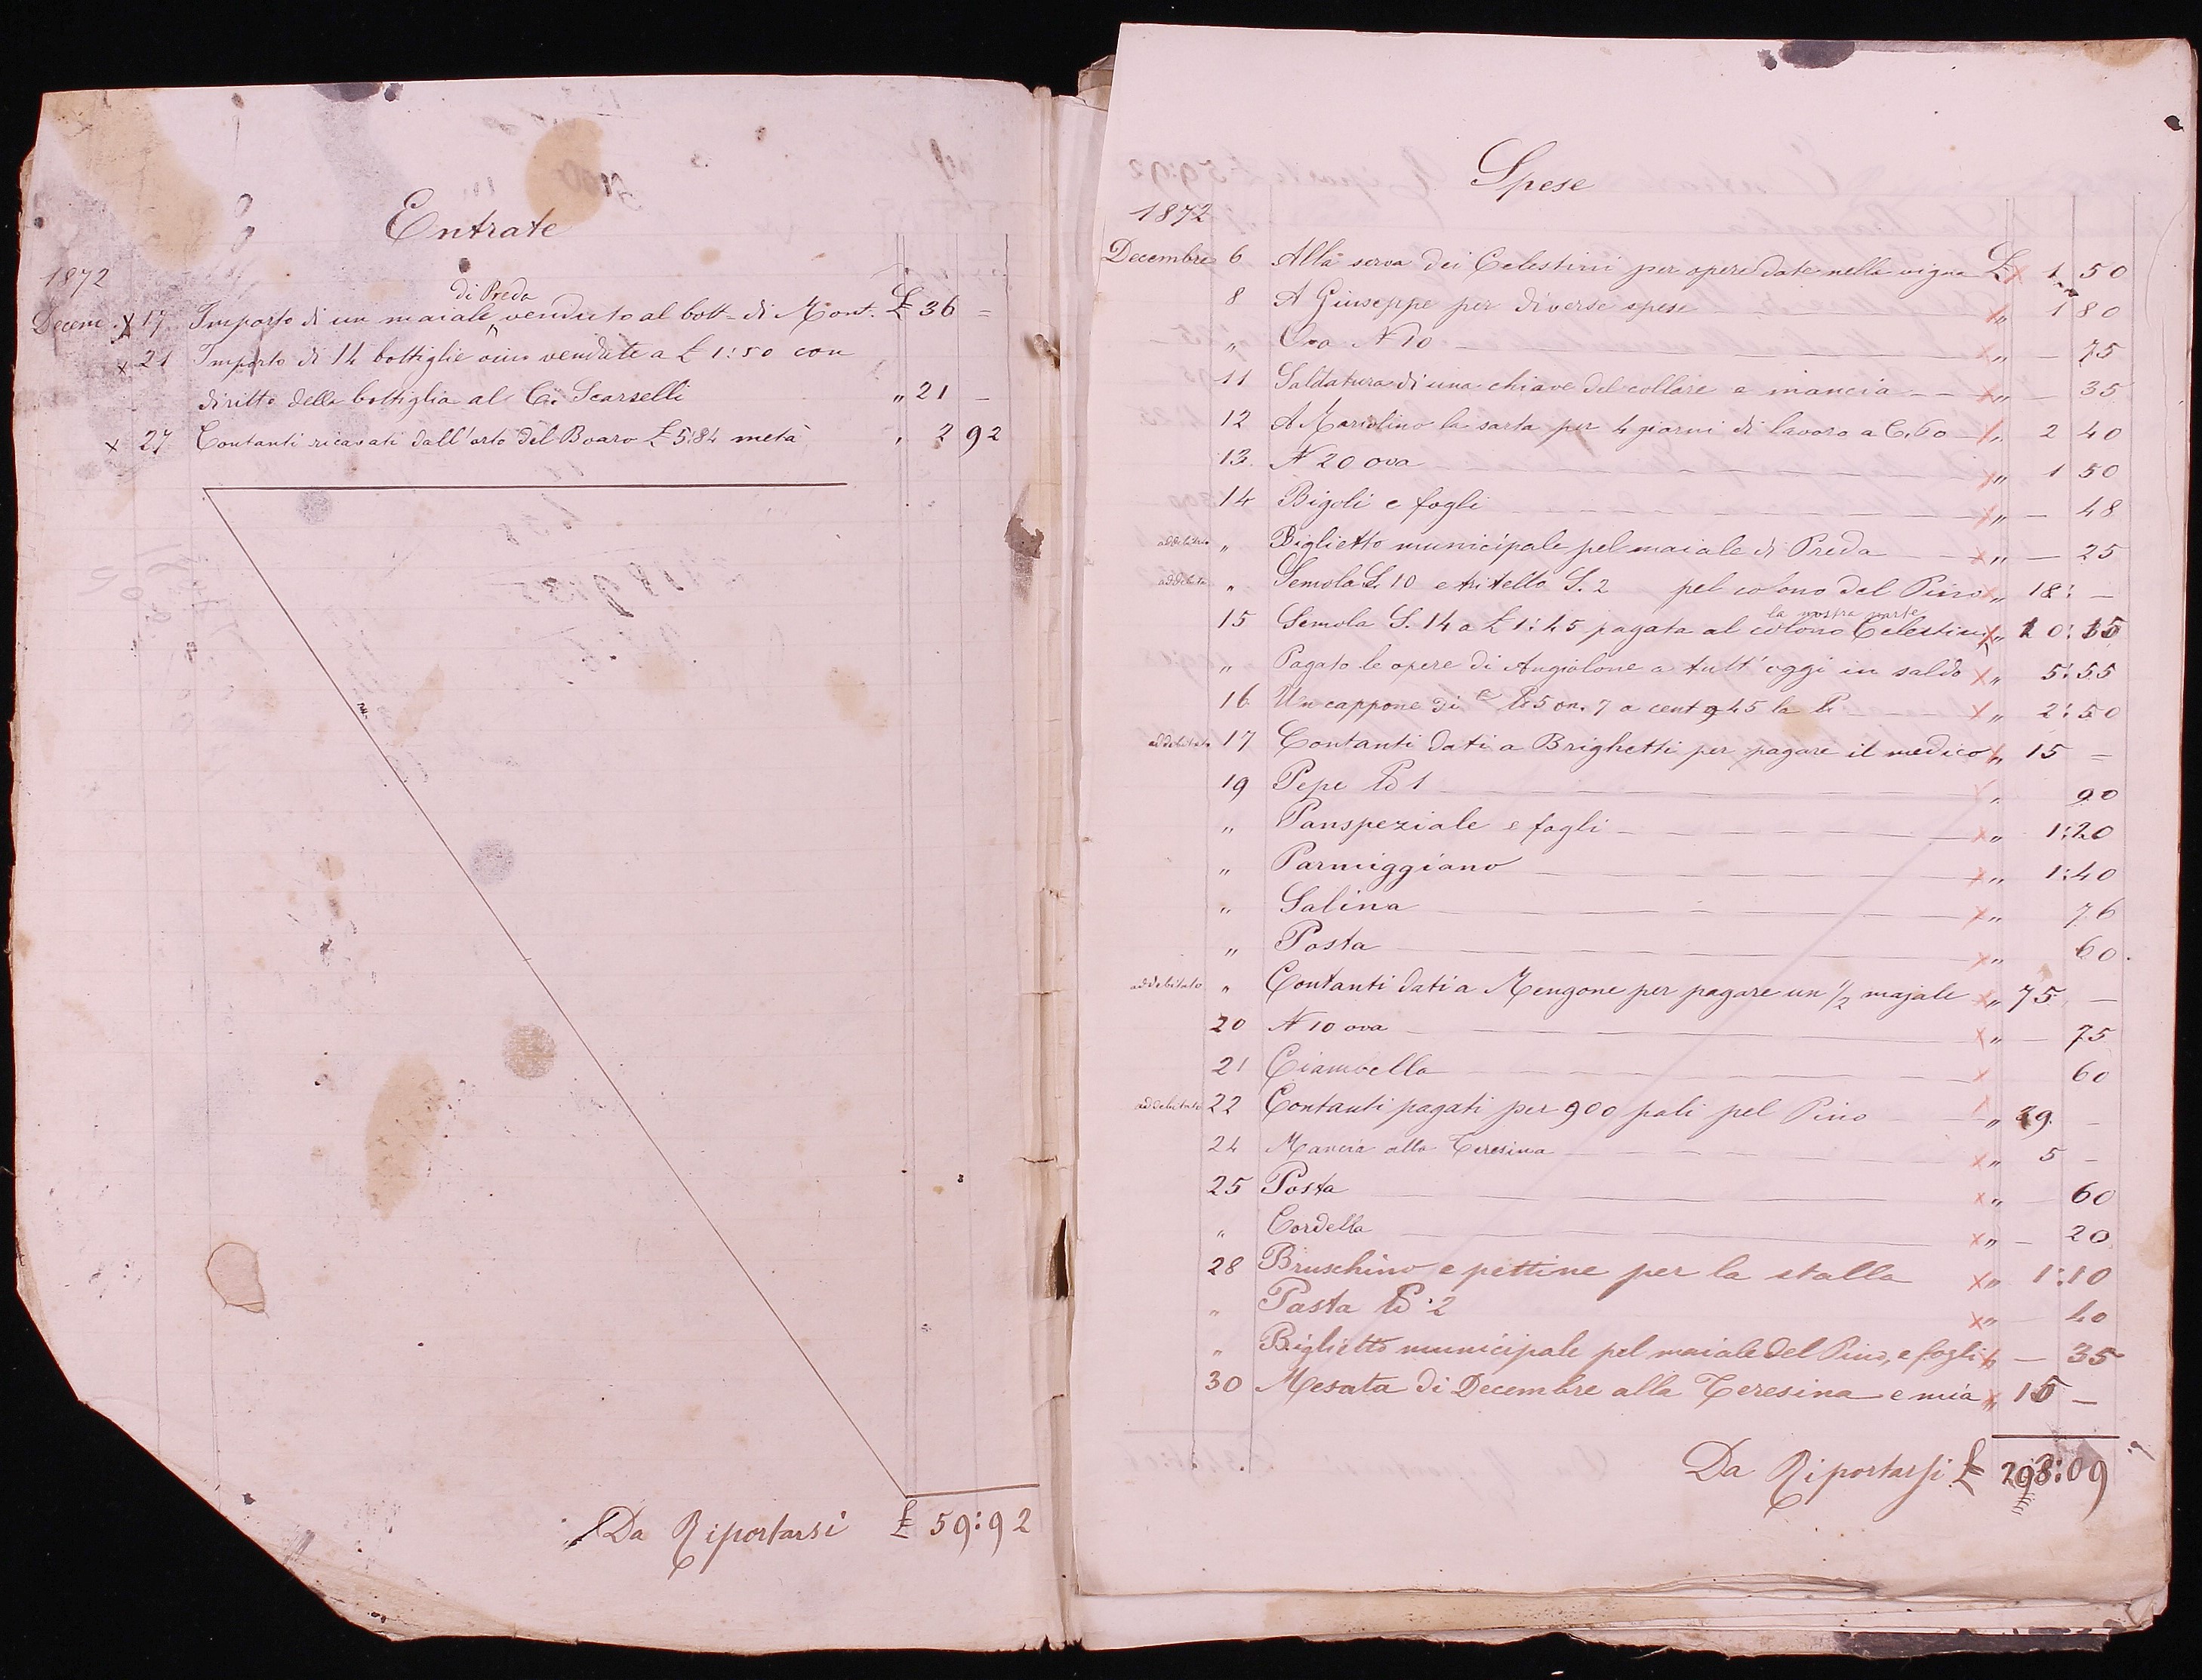 Entrate
1872
di Preda
Decem. x 17 Importo di un maiale venduto al bott- di Mont. £ 36 =
x 21 Importo di 14 bottiglie vino vendute a £ 1:50 con
diritto della bottiglia al C. Scarselli " 21 _
x 27 Contanti ricavati dall'orto del Boaro £ 5:84 metà " 2 92
Da Riportarsi £ 59:92
Spese
1872
Decembre 6 Alla serva dei Celestini per opere date nella vigna £ x 1 50
8 A Giuseppe per diverse spese x " 1 80
" Ova N 10 x " — 75
11 Saldatura di una chiave del collare e mancia x " — 35
12 A Mariolino la sarta per 4 giorni di lavoro a C. 60 x " 2 40
13. N 20 ova x " 1 50
14 Bigoli e fogli x " — 48
addebitato " Biglietto municipale pel maiale di Preda x " — 25
addebitato " Semola S. 10 e tritello S. 2 pel colono del Pino x " 18: —
la nostra parte
15 Semola S. 14 a £ 1:45 pagata al colono Celestini x " 10:15
" Pagato le opere di Angiolone a tutt'oggi in saldo x " 5:55
16 Un cappone di lb 5 on. 7 a cent 45 la lb x " 2:50
addebitato 17 Contanti dati a Brighetti per pagare il medico x " 15 =
19 Pepe lb 1 x " 90
" Panspeziale e fogli x " 1:20
" Parmiggiano x " 1:40
" Salina x " 76
" Posta x " 60.
addebitato " Contanti dati a Mengone per pagare un 1/2 majale x " 75 —
20 N 10 ova x " — 75
21 Ciambella x 60
addebitato 22 Contanti pagati per 900 pali pel Pino " 9. —
24 Mancia alla Teresina x " 5 —
25 Posta x " — 60
" Cordella x " — 20
28 Bruschino e pettine per la stalla x " 1:10
" Pasta lb 2 x " — 40
" Biglietto municipale pel maiale del Pino, e fogli x " — 35
30 Mesata di Decembre alla Teresina e mia x " 15 —
Da Riportarsi £ 298:09